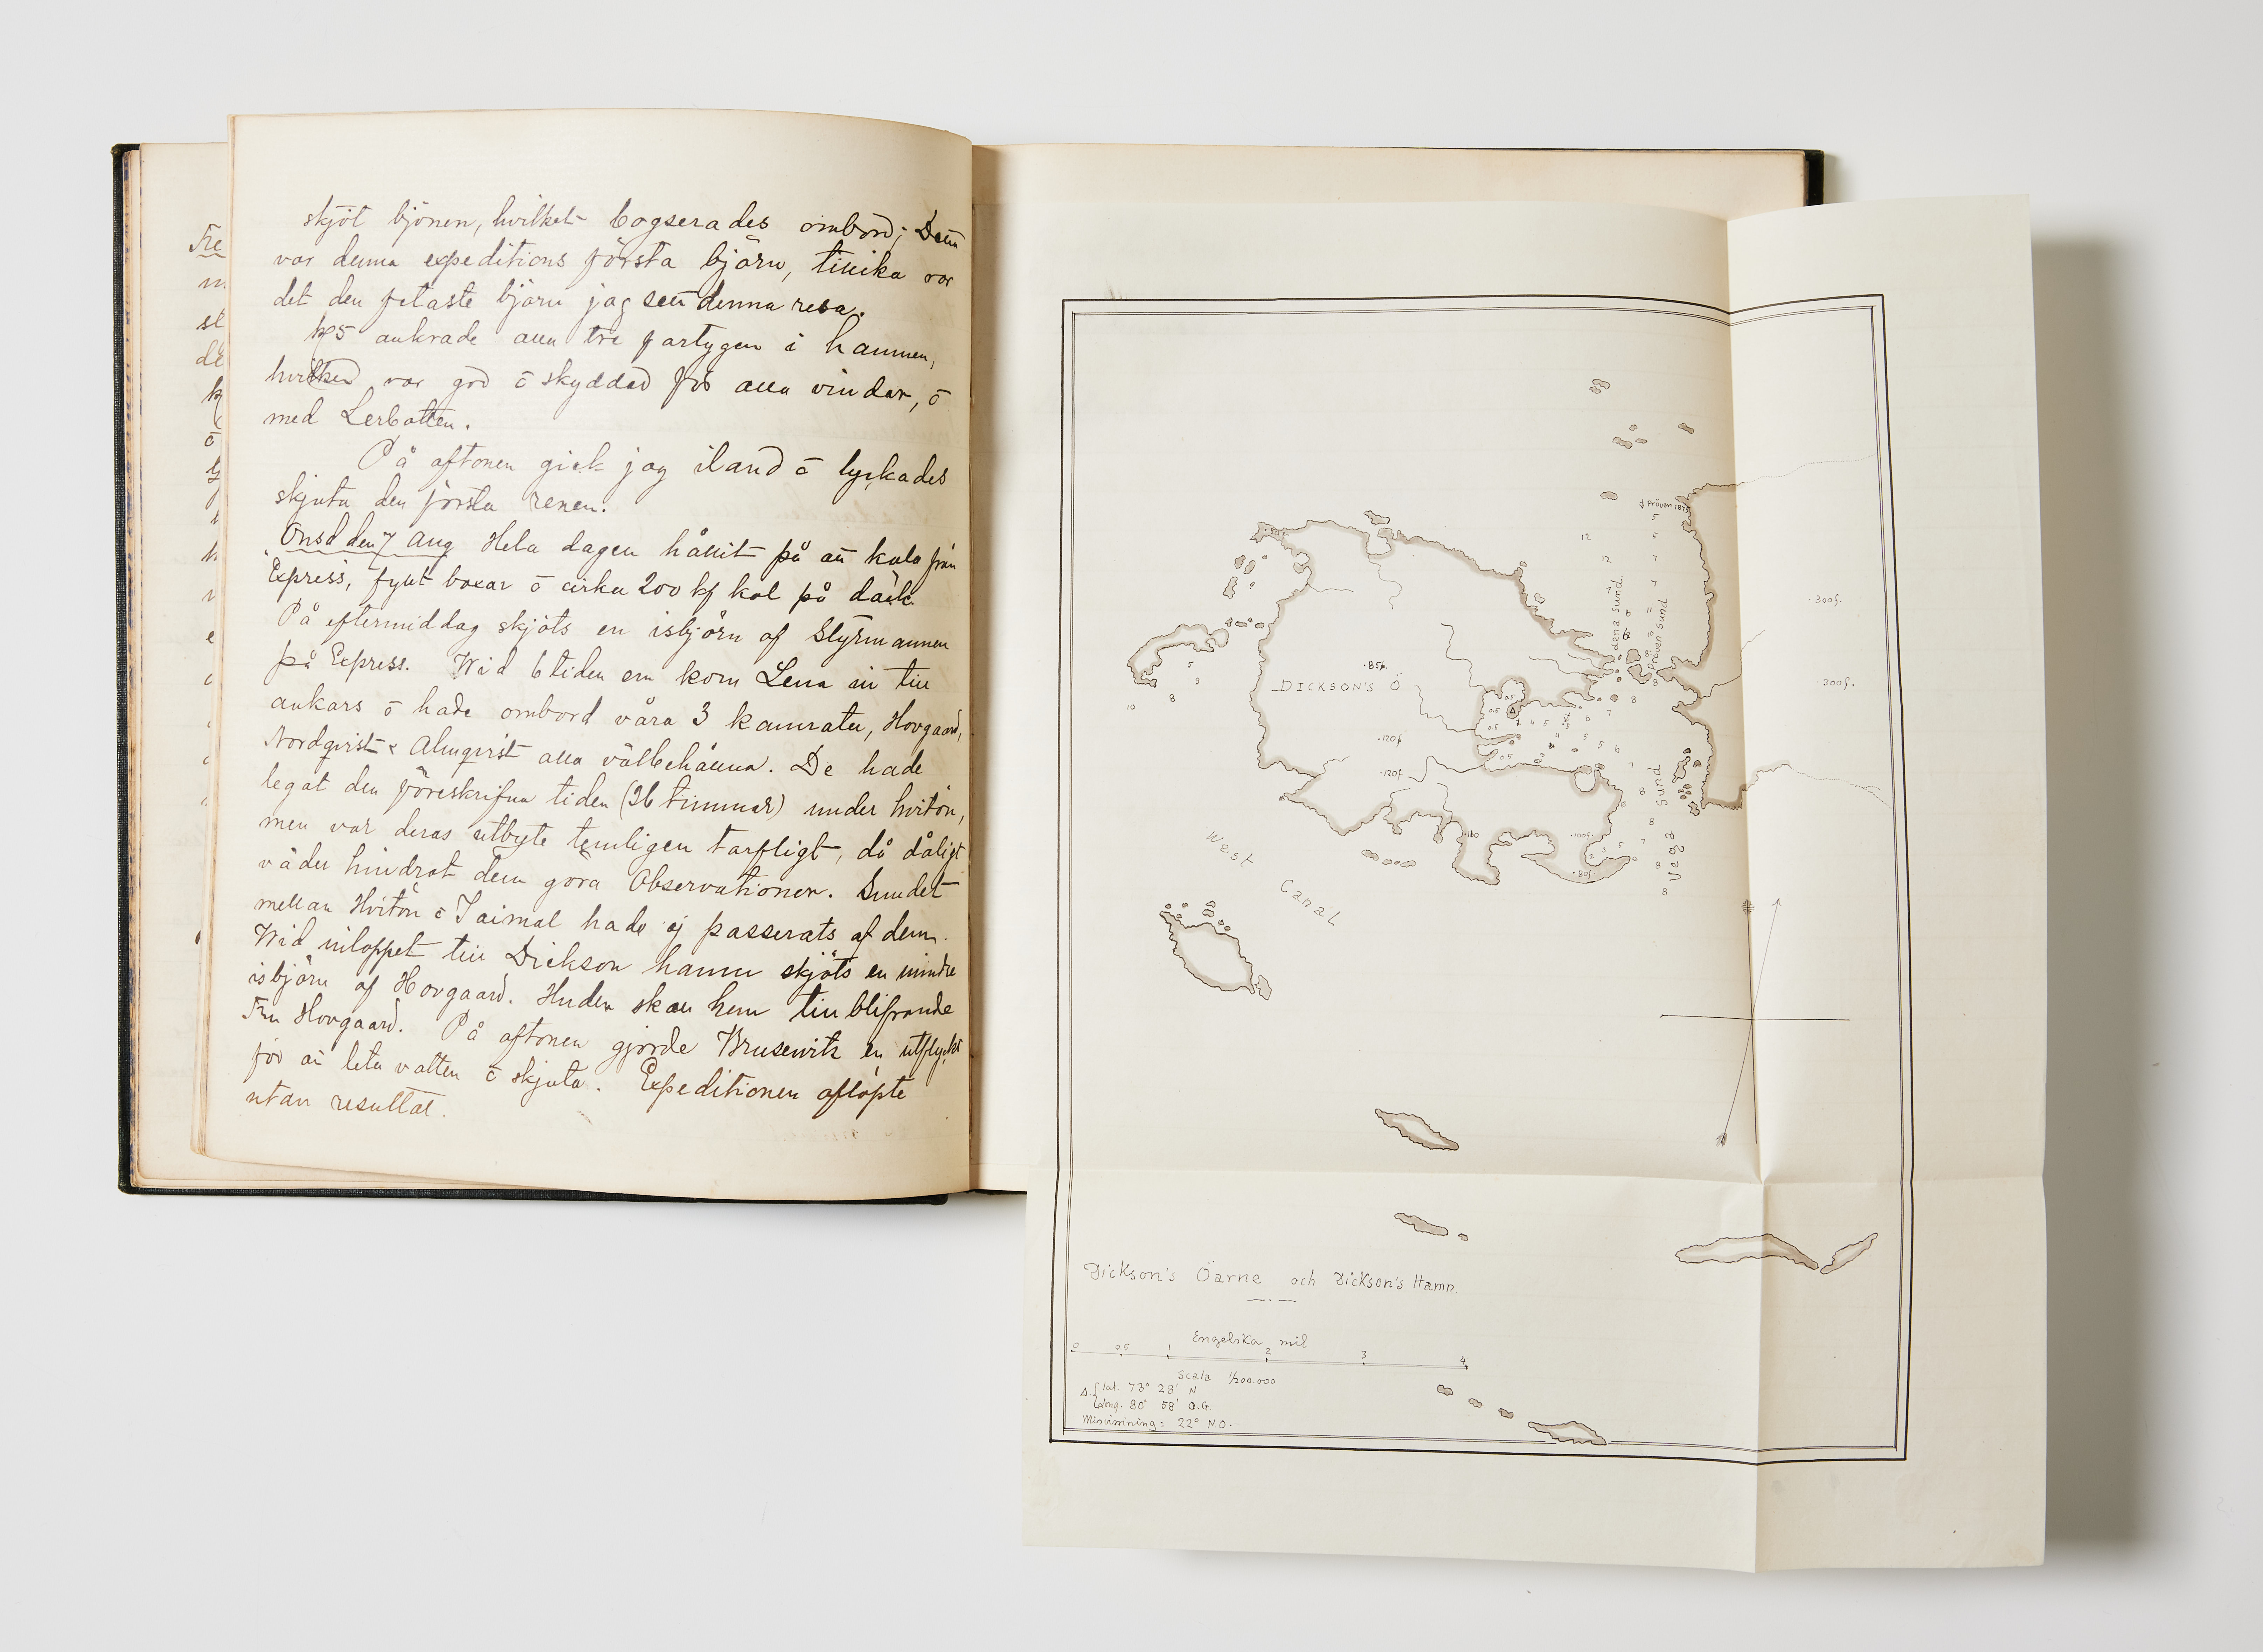 skjöt björnen, hvilket bogserades ombord; Detta
var denna expeditions första björn, tillika var
det den fetaste björn jag sett denna resa.
kl 5 ankrade alla tre fartygen i hamnen,
hvilken var god ō skyddad för alla vindar, ō
med Lerbotten.
På aftonen gick jag iland ō lyckades
skjuta den första renen.
Onsd den 7 Aug Hela dagen hållit på att kola från
Express, fyllt boxar ō cirka 200 kf kol på däck.
På eftermiddag skjöts en isbjörn af Styrmannen
på Express. Wid 6 tiden em kom Lena in till
ankars ō hade ombord våra 3 kamrater, Hovgaard,
Nordqvist & Almqvist alla välbehållna. De hade
legat den föreskrifna tiden (36 timmar) under hvitön,
men var deras utbyte temligen tarfligt, då dåligt
väder hindrat dem göra Observationer. Sundet
mellan Hvitön ō Jaimal hade ej passerats af dem.
Wid inloppet till Dickson hamn skjöts en mindre
isbjörn af Hovgaard. Huden skall hem till blifvande
Fru Hovgaard. På aftonen gjorde Brusewitz en utflykt
för att leta vatten ō skjuta. Expeditionen aflöpte
utan resultat.
Fre
m
st
de
k
ō
Pröven 1875
5
12
5
12
7
4
Lena Sund
Pröven Sund
300f.
300f.
85f.
DICKSON'S Ö
5
9
8
10
8
8
7
0.5
0.5
0.5
4
5
6
5
5
6
7
0.5
3
120f
120f
8
Vega Sund
8
7
110
100f.
80f.
8
8
West Canal
Dickson's Öarne och Dickson's Hamn.
Engelska mil
0 0.5 1 2 3 4
Scala 1/200.000
Δ. { lat. 73° 28' N
long. 80° 58' O.G.
Missvisning = 22° NO.